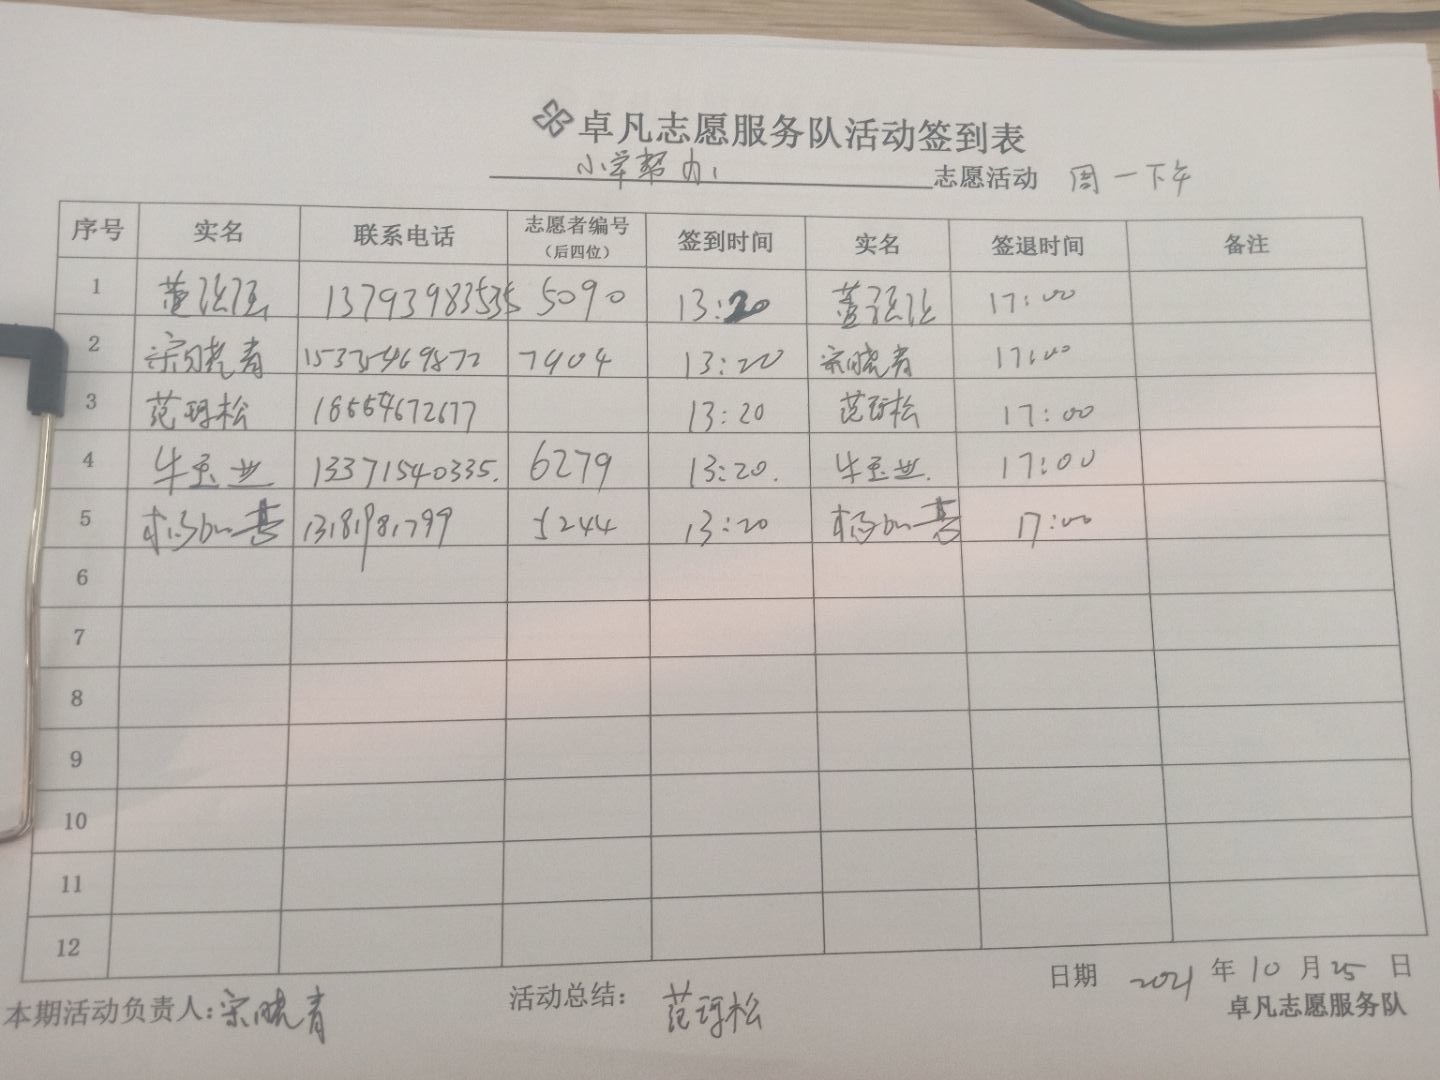 卓凡志愿服务队活动签到表
小学帮办 志愿活动 周一下午
序号 实名 联系电话 志愿者编号（后四位） 签到时间 实名 签退时间 备注
1 董 13793983535 5090 13:20 董 17:00
2 宋晓青 15335469872 7904 13:20 宋晓青 17:00
3 范珂松 18554672677 13:20 范珂松 17:00
4 牛玉业 13371540335. 6279 13:20. 牛玉业. 17:00
5 13181981799 5244 13:20 17:00
6
7
8
9
10
11
12
日期 2021 年 10 月 25 日
本期活动负责人：宋晓青 活动总结： 范珂松 卓凡志愿服务队